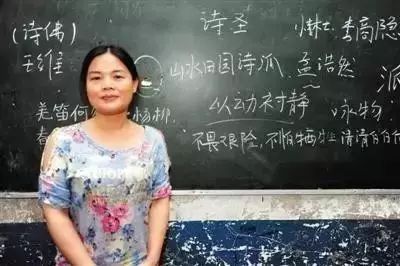 (诗佛) 诗圣 李商隐
王维 山水田园诗派 孟浩然 派
羌笛何 杨柳 以动衬静 咏物
春 不畏艰险,不怕牺牲 清清白白